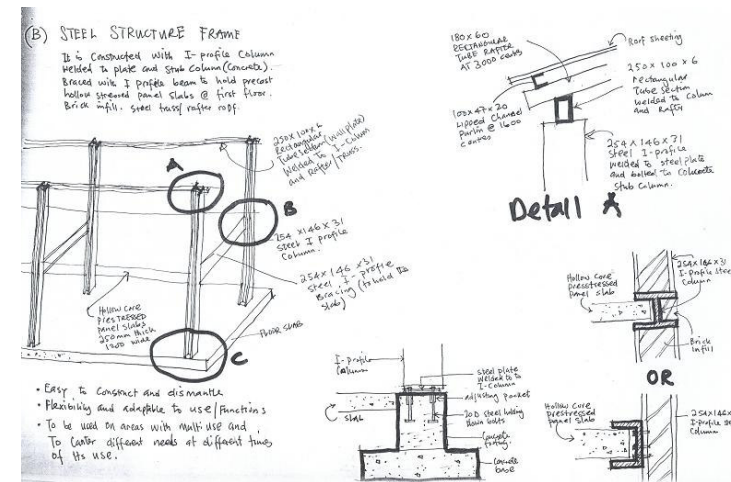 (B) STEEL STRUCTURE FRAME
It is constructed with I-profile Column
Welded to plate and stub column (concrete).
Braced with I profile beam to hold precast
hollow stressed panel slabs @ first floor.
Brick infill. Steel truss/rafter roof.
250x100x6
Rectangular
Tube section (wall plate)
Welded to I-Column
and Rafter/Truss.
A
B
254 x 146 x 31
Steel I profile
Column.
254 x 146 x 31
Steel I-profile
Bracing (to hold the
slab)
Hollow core
prestressed
panel slabs
250mm thick
1200 wide
FLOOR SLAB
C
• Easy to Construct and dismantle
• Flexibility and adaptable to use/functions
• To be used on areas with multi use and
To Canter different needs at different times
of its use.
180 x 60
RECTANGULAR
TUBE RAFTER
AT 3000 cents
Roof sheeting
250 x 100 x 6
rectangular
Tube section
welded to Column
and Rafter
100 x 47 x 20
Lipped Channel
Purlin @ 1600
254 x 146 x 31
Steel I-profile
welded to steel plate
and bolted to concrete
stub column.
Detail A
I-profile
Column
steel plate
welded to
I-Column
adjusting pocket
steel holding
down bolts
C
slab
Concrete
Concrete
base
254 x 146 x 31
I-Profile Steel
Column
Hollow Core
prestressed
panel slab
Brick
Infill
OR
Hollow Core
prestressed
panel slab
254 x 146 x
I-profile
Column